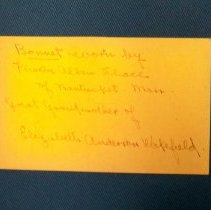 Bonnet worn by
of Nantucket. Mass.
Great Grandmother of
Elizabeth Anderson Wakefield.